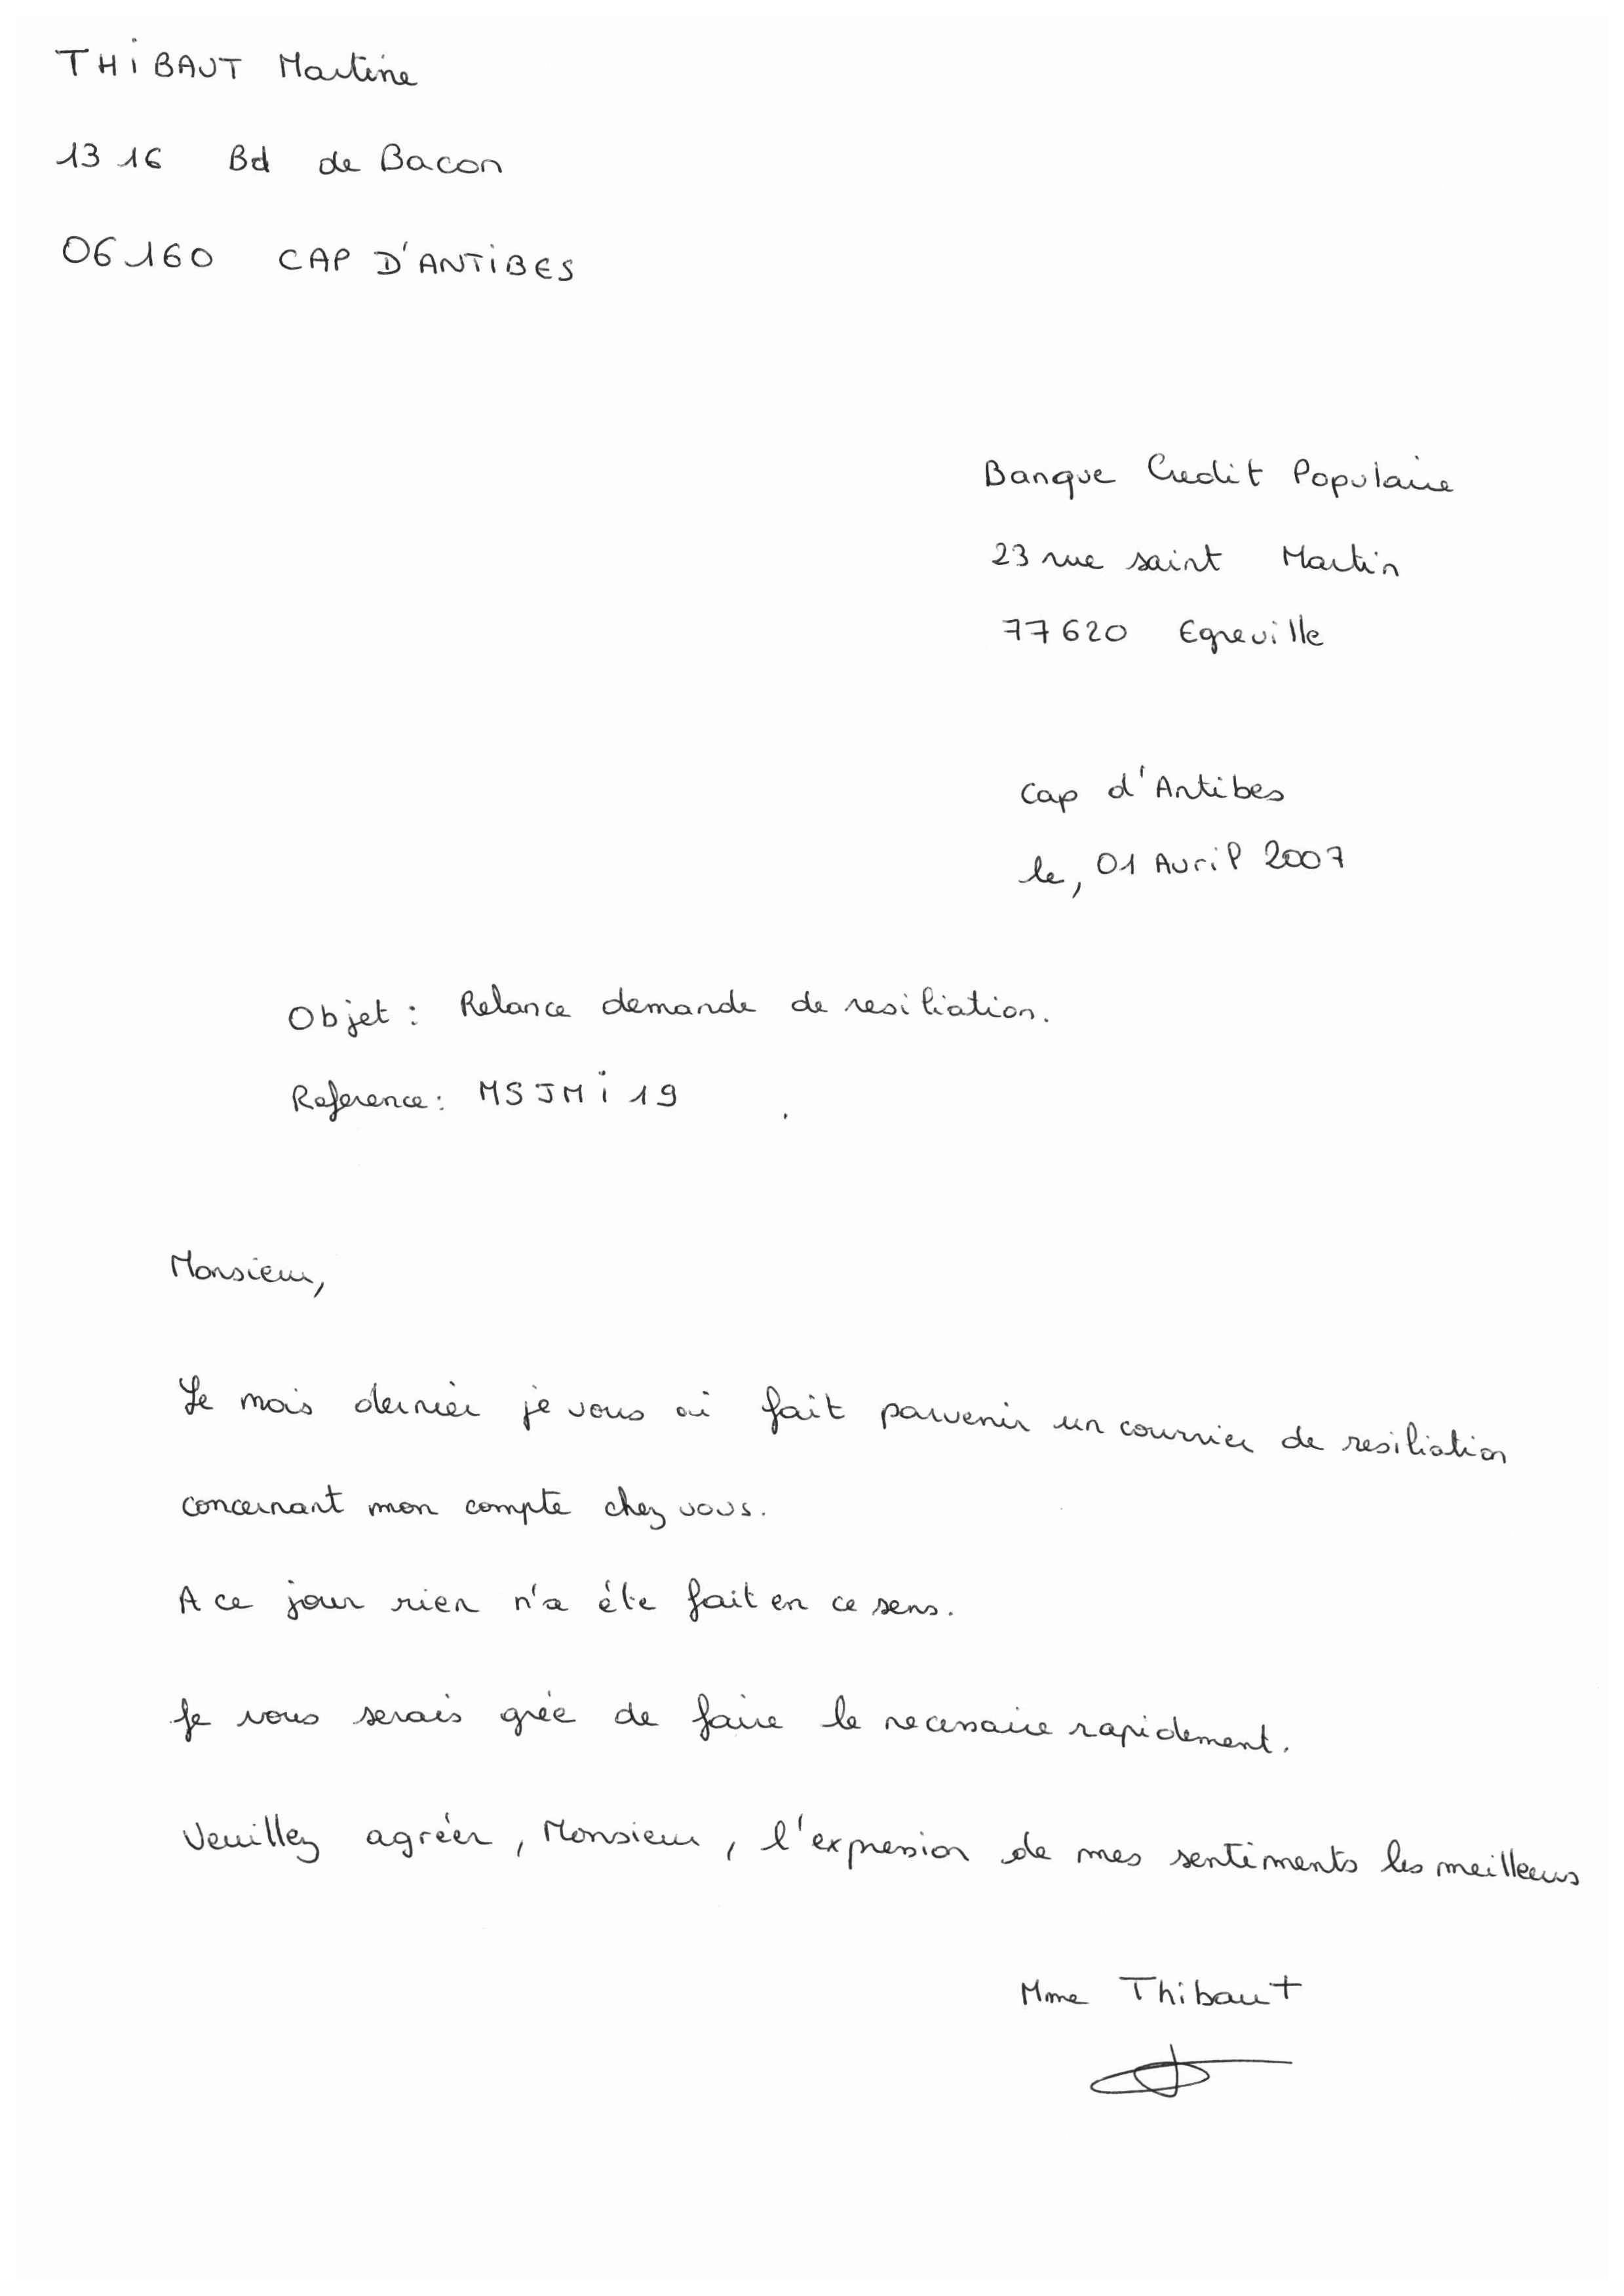 THiBAUT Martine
1316 Bd de Bacon
06160 CAP D'ANTiBES
Banque Credit Populaire
23 rue saint Martin
77620 Egreville
Cap d'Antibes
le, 01 Avril 2007
Objet : Relance demande de resiliation.
Reference : MSJMi19
Monsieur,
Le mois dernier je vous ai fait parvenir un courrier de resiliation
concernant mon compte chez vous.
A ce jour rien n'a éte fait en ce sens.
Je vous serais grée de faire le necessaire rapidement.
Veuillez agréer, Monsieur, l'expression de mes sentiments les meilleurs
Mme Thibaut